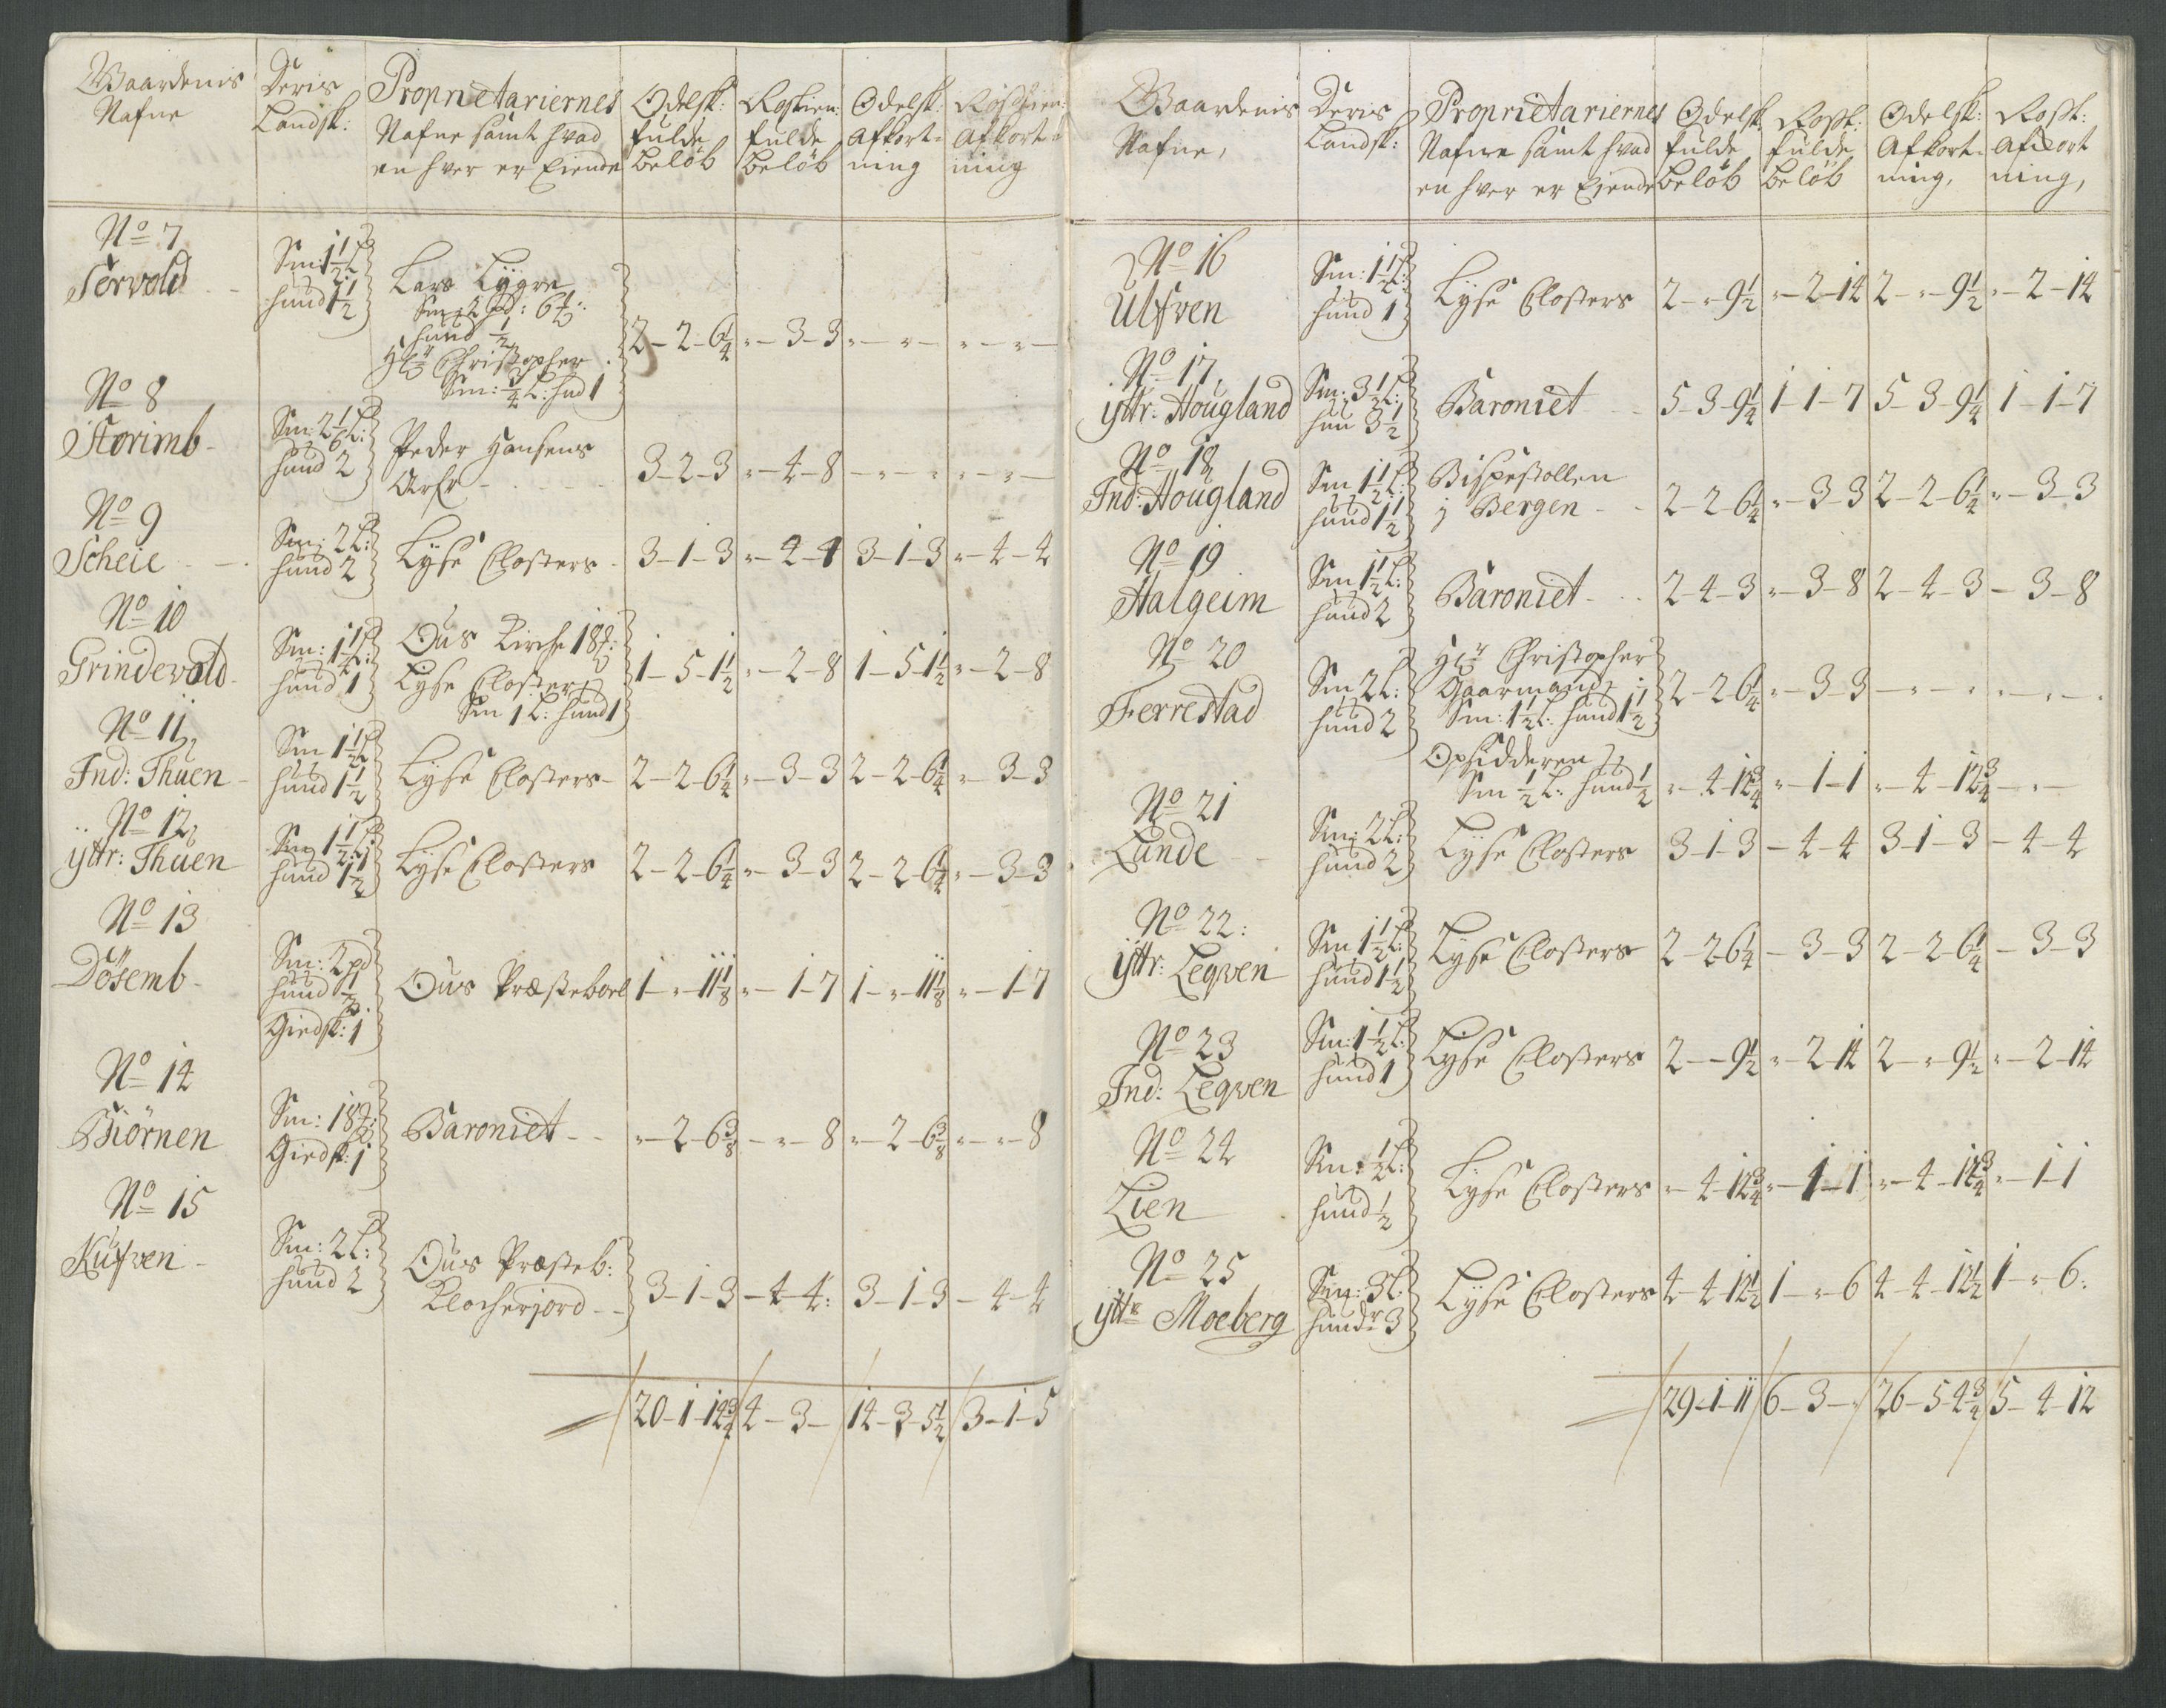 Gaardenis Nafne | Deris Landsk: | Proprietariernes Nafne samt hvad en hver er Eiende | Odelsk: fulde beløb | Rostien: fulde beløb | Odelsk: Afkort= ning | Rostien: Afkort= ning
No 7
Servold - - | Sm: 1½ L: hund 1½ | Lars Lygre
Sm: 2 pd: 6 ℔:
hund ½
Hr Christopher
Sm: ¾ L: hnd 1 | 2-2-6¼ | "-3-3 | -"- | -"-
No 8
Storimb - | Sm: 2 L: hund 2 | Peder Hansens
Arfr - - - | 3-2-3 | "-4-8 | -"- | -"-
No 9
Scheie - - | Sm: 2 L: hund 2 | Lyse Closters - | 3-1-3 | "-4-4 | 3-1-3 | "-4-4
No 10
Grindevold - | Sm: 1¼ L: hund 1 | Ous Kirche 18 ℔:
Lyse Closters
Sm 1 L: hund 1 | 1-5-1½ | "-2-8 | 1-5-1½ | "-2-8
No 11
Ind: Thuen - | Sm 1½ L hund 1½ | Lyse Closters - | 2-2-6¼ | "-3-3 | 2-2-6¼ | "-3-3
No 12
ÿttr: Thuen | Sm 1½ L: hund 1½ | Lyse Closters | 2-2-6¼ | "-3-3 | 2-2-6¼ | "-3-3
No 13
Dösemb - | Sm: 2 pd hund ½ Giedsk: 1 | Ous Præsteboel | 1-"-11⅛ | "-1-7 | 1-"-11⅛ | "-1-7
No 14
Biörnen | Sm: 18 ℔: Giedsk: 1 | Baroniet - - | "-2-6⅜ | -"-8 | "-2-6⅜ | "-"-8
No 15
Kufven - | Sm: 2 L: hund 2 | Ous Præsteb:
Klocherjord - - | 3-1-3 | -4-4: | 3-1-3 | -4-4
20-1-14¾ | 4-3- | 14-3-5½ | 3-1-5
Gaardenis Nafne, | Deris Landsk: | Proprietariernes Nafne samt hvad en hver er Ejende | Odelsk: fulde beløb | Rostt: fulde beløb | Odelsk: Afkort= ning, | Rostt: Afkort ning,
No 16
Ulfven | Sm: 1½ L: hund 1 | Lyse Closters | 2-"-9½ | "-2-14 | 2-"-9½ | "-2-14
No 17
ÿttr: Hougland | Sm: 3½ L: hun 3½ | Baroniet - - | 5-3-9¼ | 1-1-7 | 5-3-9¼ | 1-1-7
No 18
Ind: Hougland | Sm 1½ L: hund 1½ | Bispestollen
j Bergen - - | 2-2-6¼ | "-3-3 | 2-2-6¼ | "-3-3
No 19
Halgeim | Sm 1½ L: hund 2 | Baroniet - - | 2-4-3 | "-3-8 | 2-4-3 | -3-8
No 20
Ferrestad | Sm 2 L: hund 2 | Hr Christopher
Gaarmand
Sm: 1½ L: hund 1½ | 2-2-6¼ | "-3-3 | -"- | -"-
Opsidderen
Sm ½ L: hund ½ | "-4-12¾ | "-1-1 | "-4-12¾ | -"-
No 21
Lunde - | Sm: 2 L: hund 2 | Lyse Closters | 3-1-3 | -4-4 | 3-1-3 | -4-4
No 22:
ÿttr: Leqven | Sm 1½ L: hund 1½ | Lyse Closters | 2-2-6¼ | -3-3 | 2-2-6¼ | -3-3
No 23
Ind: Leqven | Sm: 1½ L: hund 1 | Lyse Closters | 2--9½ | "-2-14 | 2-"-9½ | "-2-14
No 24
Lien | Sm: ½ L: hund ½ | Lyse Closters | "-4-12¾ | "-1-1 | "-4-12¾ | "-1-1
No 25
ÿttr Moeberg | Sm: 3 L: hundr 3 | Lyse Closters | 4-4-12½ | 1-"-6 | 4-4-12½ | 1-"-6:
29-1-11 | 6-3-" | 26-5-4¾ | 5-4-12